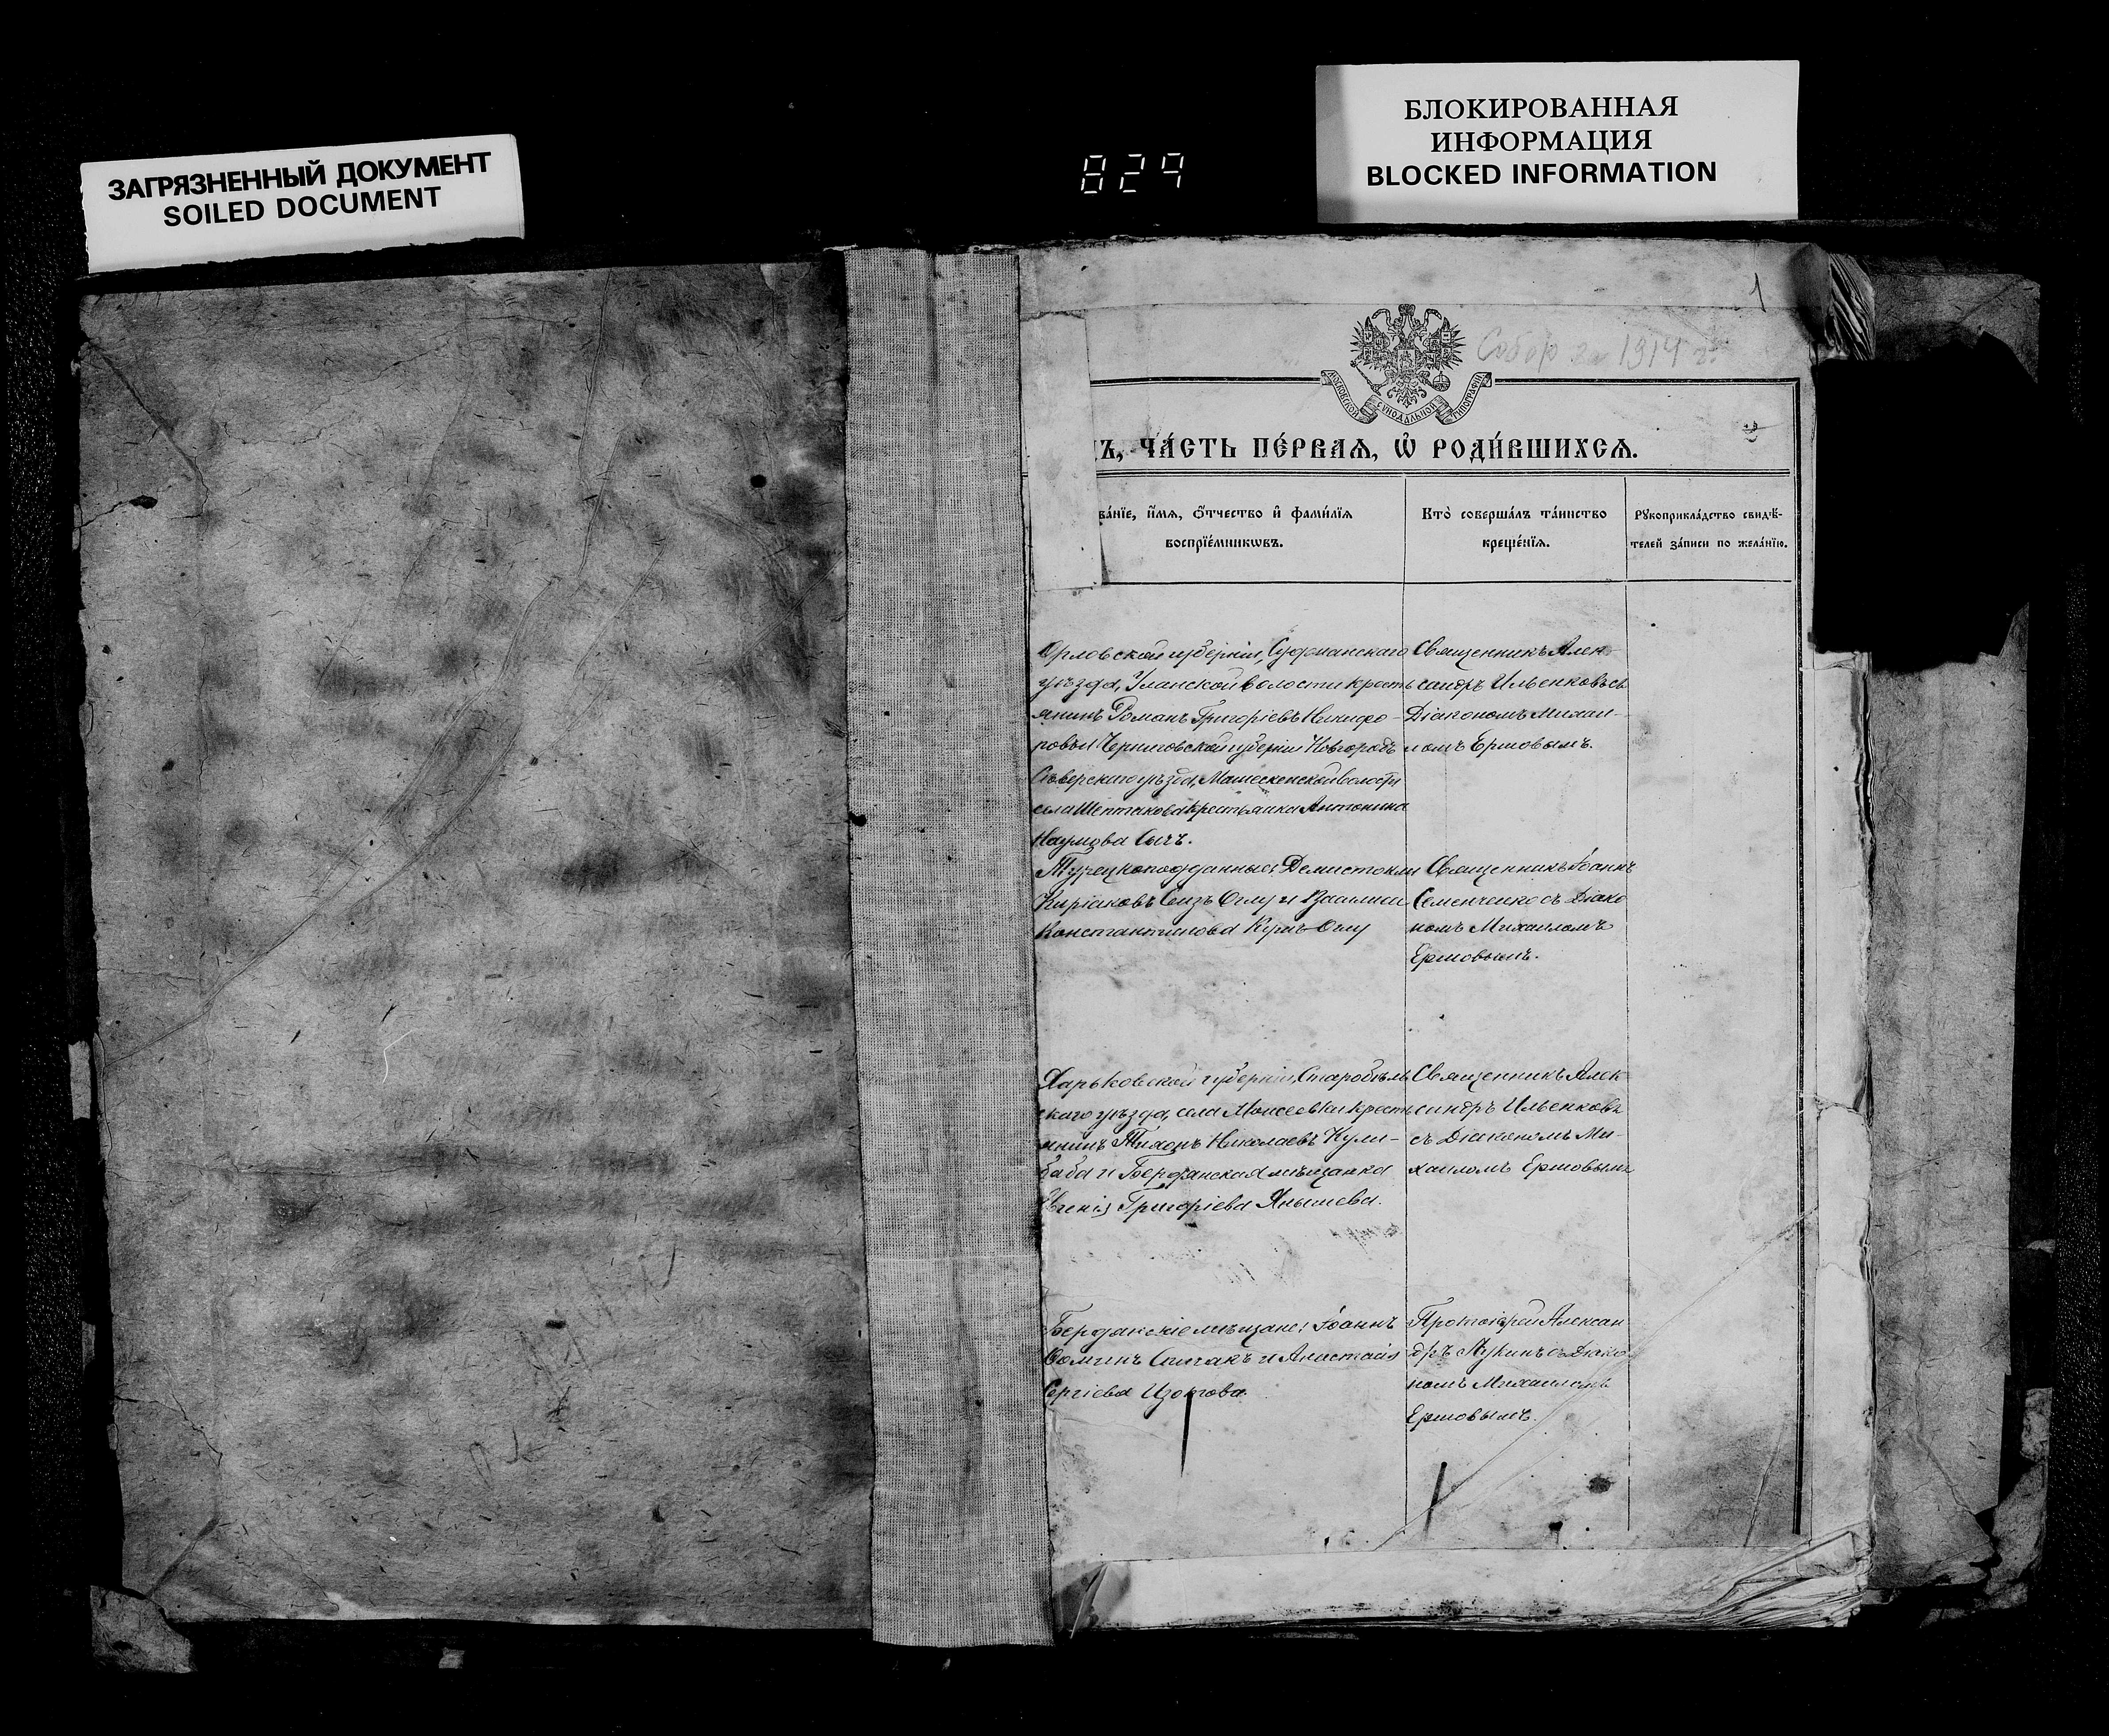 ЗАГРЯЗНЕННЫЙ ДОКУМЕНТ
SOILED DOCUMENT
829
БЛОКИРОВАННАЯ
ИНФОРМАЦИЯ
BLOCKED INFORMATION
1
Собор за 1914 г.
МОСКОВСКОЙ СѴНОДАЛЬНОЙ ТИПОГРАФІИ
Ъ, ЧА́СТЬ ПЕ́РВАѦ, Ѽ РОДИ́ВШИХСѦ.
ва́нїе, и҆́мѧ, ѻ҆́тчество и҆ фами́лїѧ
воспрїе́мникѡвъ.
Кто̀ соверша́лъ та́инство
креще́нїѧ.
Рꙋкоприкла́дство свидѣ́-
телей за́писи по жела́нїю.
Орловской губерніи,
уѣзда, волости кресть
янинъ Романъ Григоріевъ Никифо-
ровъ и Черниговской губерніи Новгородъ
Сѣверскаго уѣзда, волости
села Шептакова крестьянка Антонина
Наумова Сычъ.
Священникъ Алек
сандръ Ильенковъ съ
Діакономъ Михаи-
ломъ Ершовымъ.
Турецкоподданные Демистокли
Киріаковъ Оглу и
Константинова Оглу
Священникъ Іоаннъ
Семенченко съ Діако
номъ Михаиломъ
Ершовымъ.
Харьковской губерніи, Старобѣль
скаго уѣзда, села Моисеевки кресть
янинъ Тихонъ Николаевъ Кули-
баба и Бердянская мѣщанка
Евгенія Григоріева Янышева.
Священникъ Алек
сандръ Ильенковъ
съ Діакономъ Ми-
хаиломъ Ершовымъ
Бердянскіе мѣщане: Іоаннъ
Фоминъ Спичакъ и Анастасія
Сергіева Изотова.
Протоіерей Алексан
дръ Лукинъ съ Діако
номъ Михаиломъ
Ершовымъ.